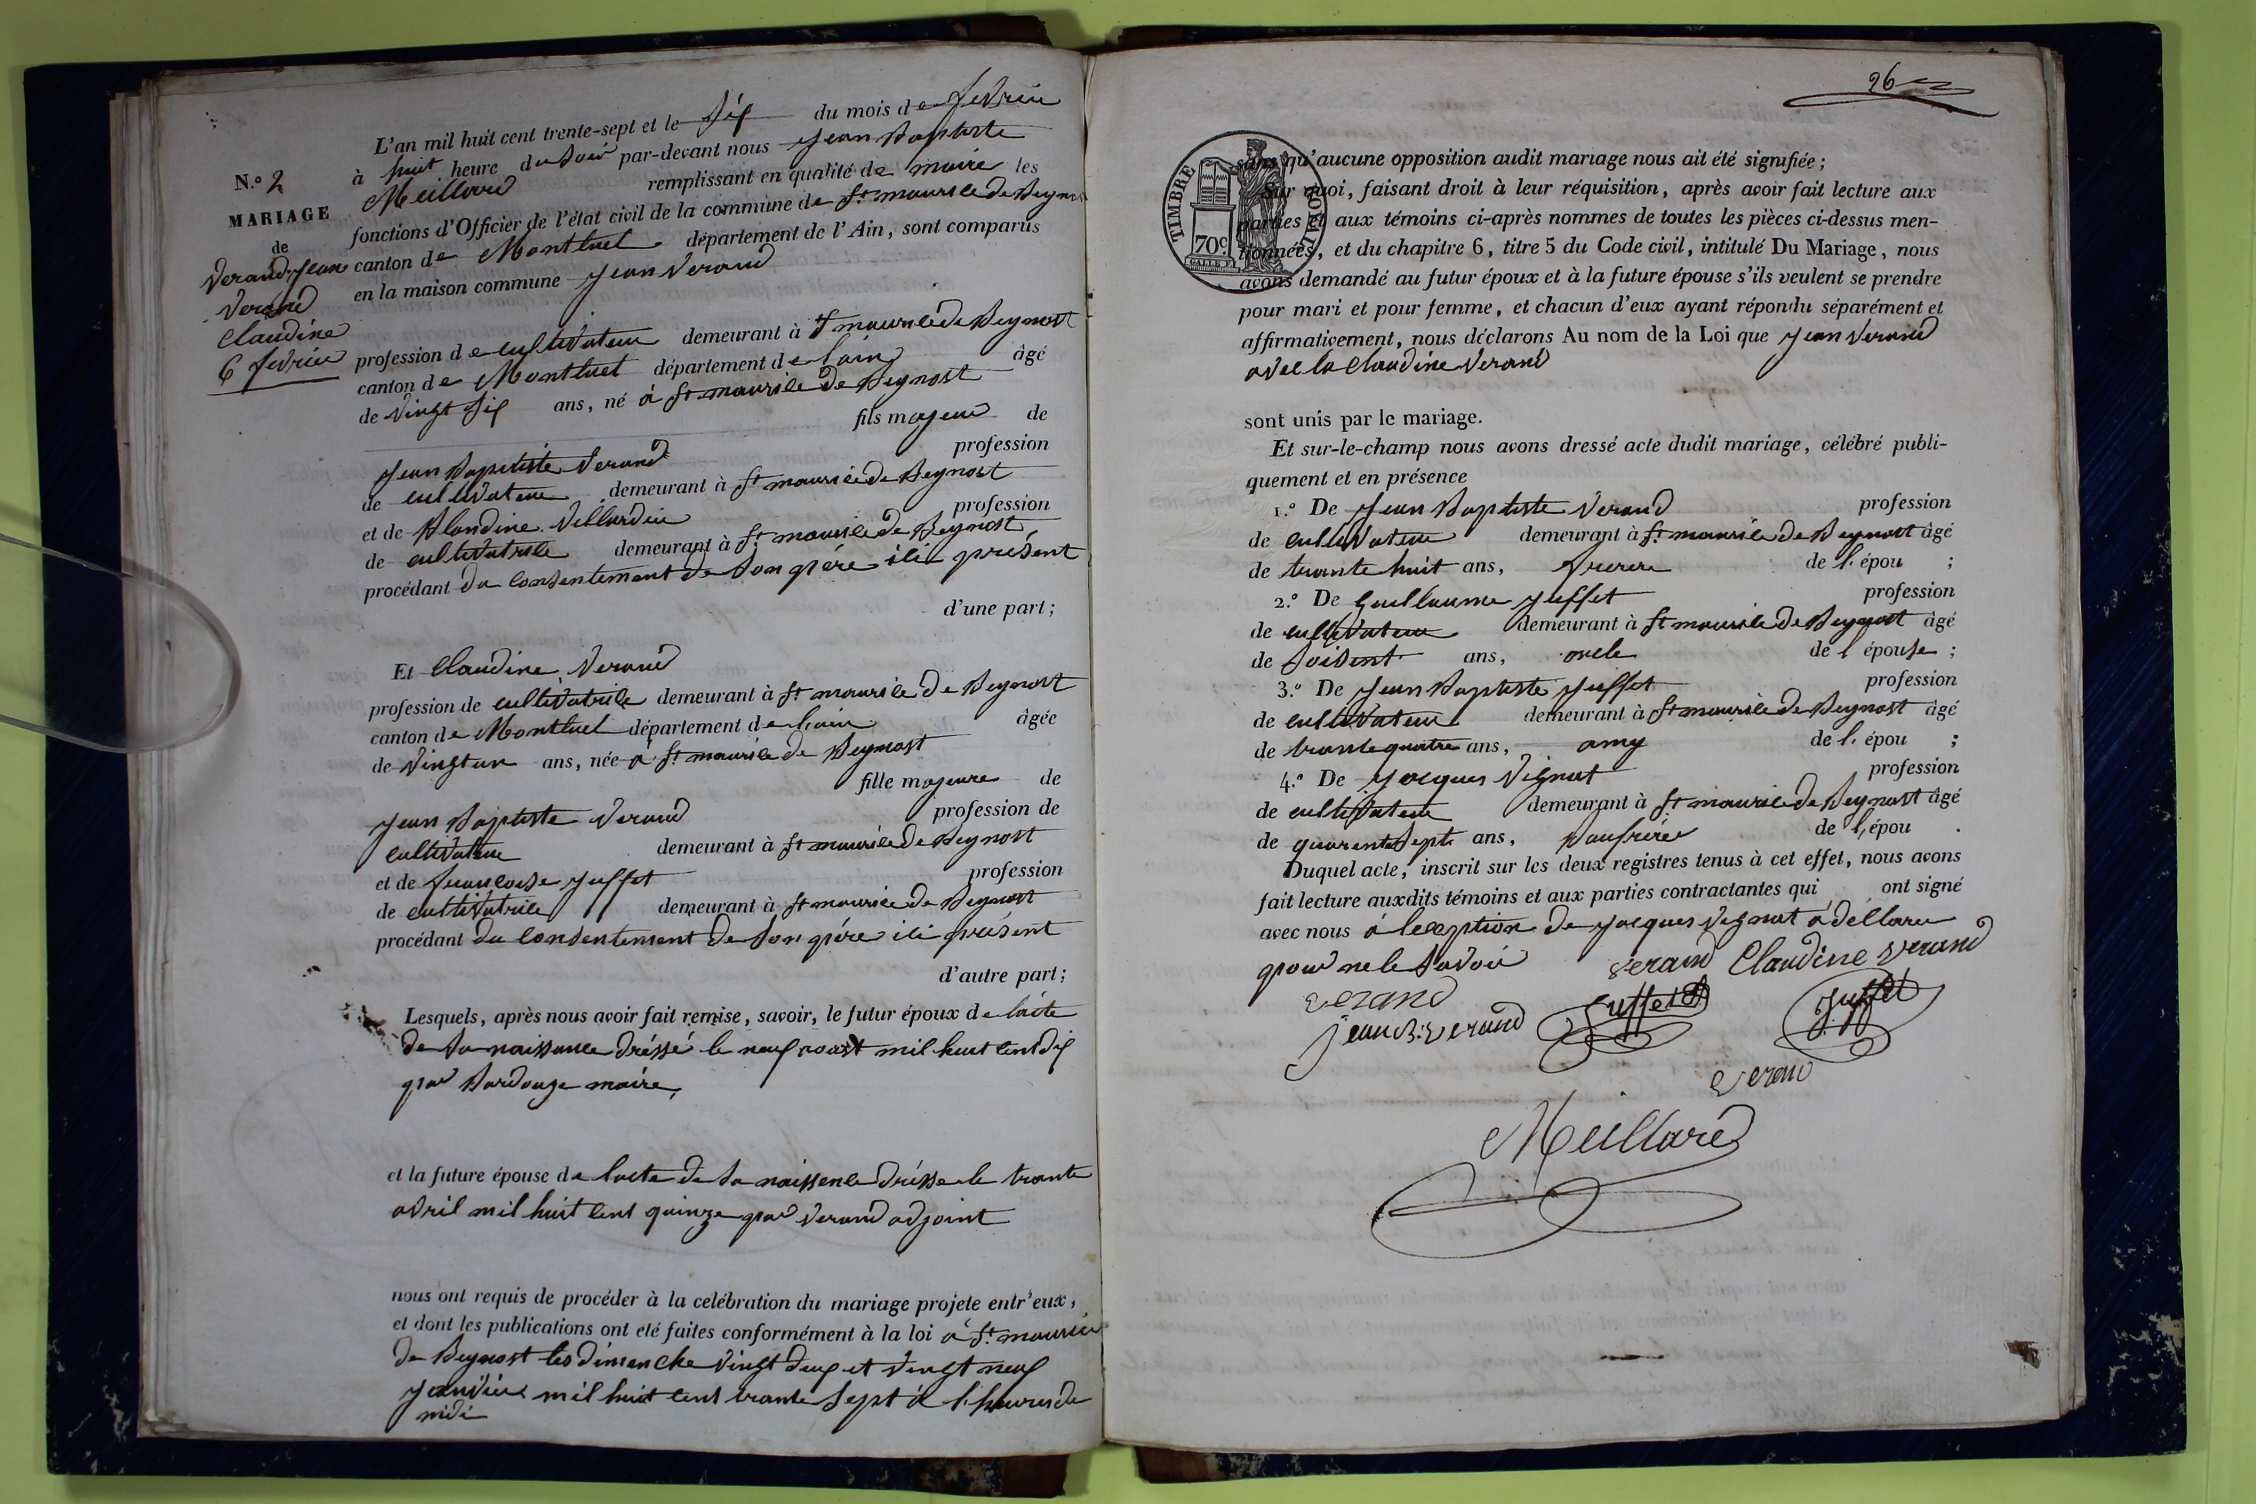 N.º 2
MARIAGE
de
Verand Jean
Verand
Claudine
6 fevrier
L'an mil huit cent trente-sept et le six du mois de fevrier
à huit heure du soir par-devant nous Jean Baptiste
Meillard remplissant en qualité de maire les
fonctions d'Officier de l'état civil de la commune de St maurice de Beynost
canton de Montluel département de l'Ain, sont comparus
en la maison commune Jean Verand
profession de cultivateur demeurant à St maurice de Beynost
canton de Montluel département de lain âgé
de vingt six ans, né à St maurice de Beynost
fils majeur de
Jean Baptiste Verand profession
de cultivateur demeurant à St maurice de Beynost
et de Blandine Villardier profession
de cultivatrice demeurant à St maurice de Beynost
procédant du consentement de son père ici présent
d'une part;
Et Claudine Verand
profession de cultivatrice demeurant à St maurice de Beynost
canton de Montluel département de lain âgée
de vingt un ans, née à St maurice de Beynost
fille majeure de
Jean Baptiste Verand profession de
cultivateur demeurant à St maurice de Beynost
et de francoise Juffet profession
de cultivatrice demeurant à St maurice de Beynost
procédant du consentement de son père ici présent
d'autre part;
Lesquels, après nous avoir fait remise, savoir, le futur époux de lacte
de sa naissance dréssé le neuf aoust mil huit cent dix
par Bardouze maire,
et la future épouse de lacte de sa naissence drésse le trante
avril mil huit cent quinze par Verand adjoint
nous ont requis de procéder à la celébration du mariage projete entr'eux,
et dont les publications ont eté faites conformément à la loi à St maurice
de Beynost les dimenche vingt deux et vingt neuf
janvier mil huit cent trante sept à l'heure de
midi
26
TIMBRE ROYAL
70c
sans qu'aucune opposition audit mariage nous ait été signifiée;
Sur quoi, faisant droit à leur réquisition, après avoir fait lecture aux
parties et aux témoins ci-après nommes de toutes les pièces ci-dessus men-
tionnées, et du chapitre 6, titre 5 du Code civil, intitulé Du Mariage, nous
avons demandé au futur époux et à la future épouse s'ils veulent se prendre
pour mari et pour femme, et chacun d'eux ayant répondu séparément et
affirmativement, nous déclarons Au nom de la Loi que Jean Verand
avec la Claudine Verand
sont unis par le mariage.
Et sur-le-champ nous avons dressé acte dudit mariage, célébré publi-
quement et en présence
1.º De Jean Baptiste Verand profession
de cultivateur demeurant à St maurice de Beynost âgé
de trante huit ans, frerere de l. épou ;
2.º De Guillaume Juffet profession
de cultivateur demeurant à St maurice de Beynost âgé
de soisent ans, oncle de l épouse ;
3.º De Jean Baptiste Juffet profession
de cultivateur demeurant à St maurice de Beynost âgé
de trante quatre ans, amy de l. épou ;
4.º De Jacques Vignat profession
de cultivateur demeurant à St maurice de Beynost âgé
de quarente sept ans, Baufrere de l, épou .
Duquel acte, inscrit sur les deux registres tenus à cet effet, nous avons
fait lecture auxdits témoins et aux parties contractantes qui ont signé
avec nous à leception de Jacques Vignat à déclaré
pour ne le savoir verand Claudine verand
verand Juffet Juffet
jean B. verand
verand
Meillard